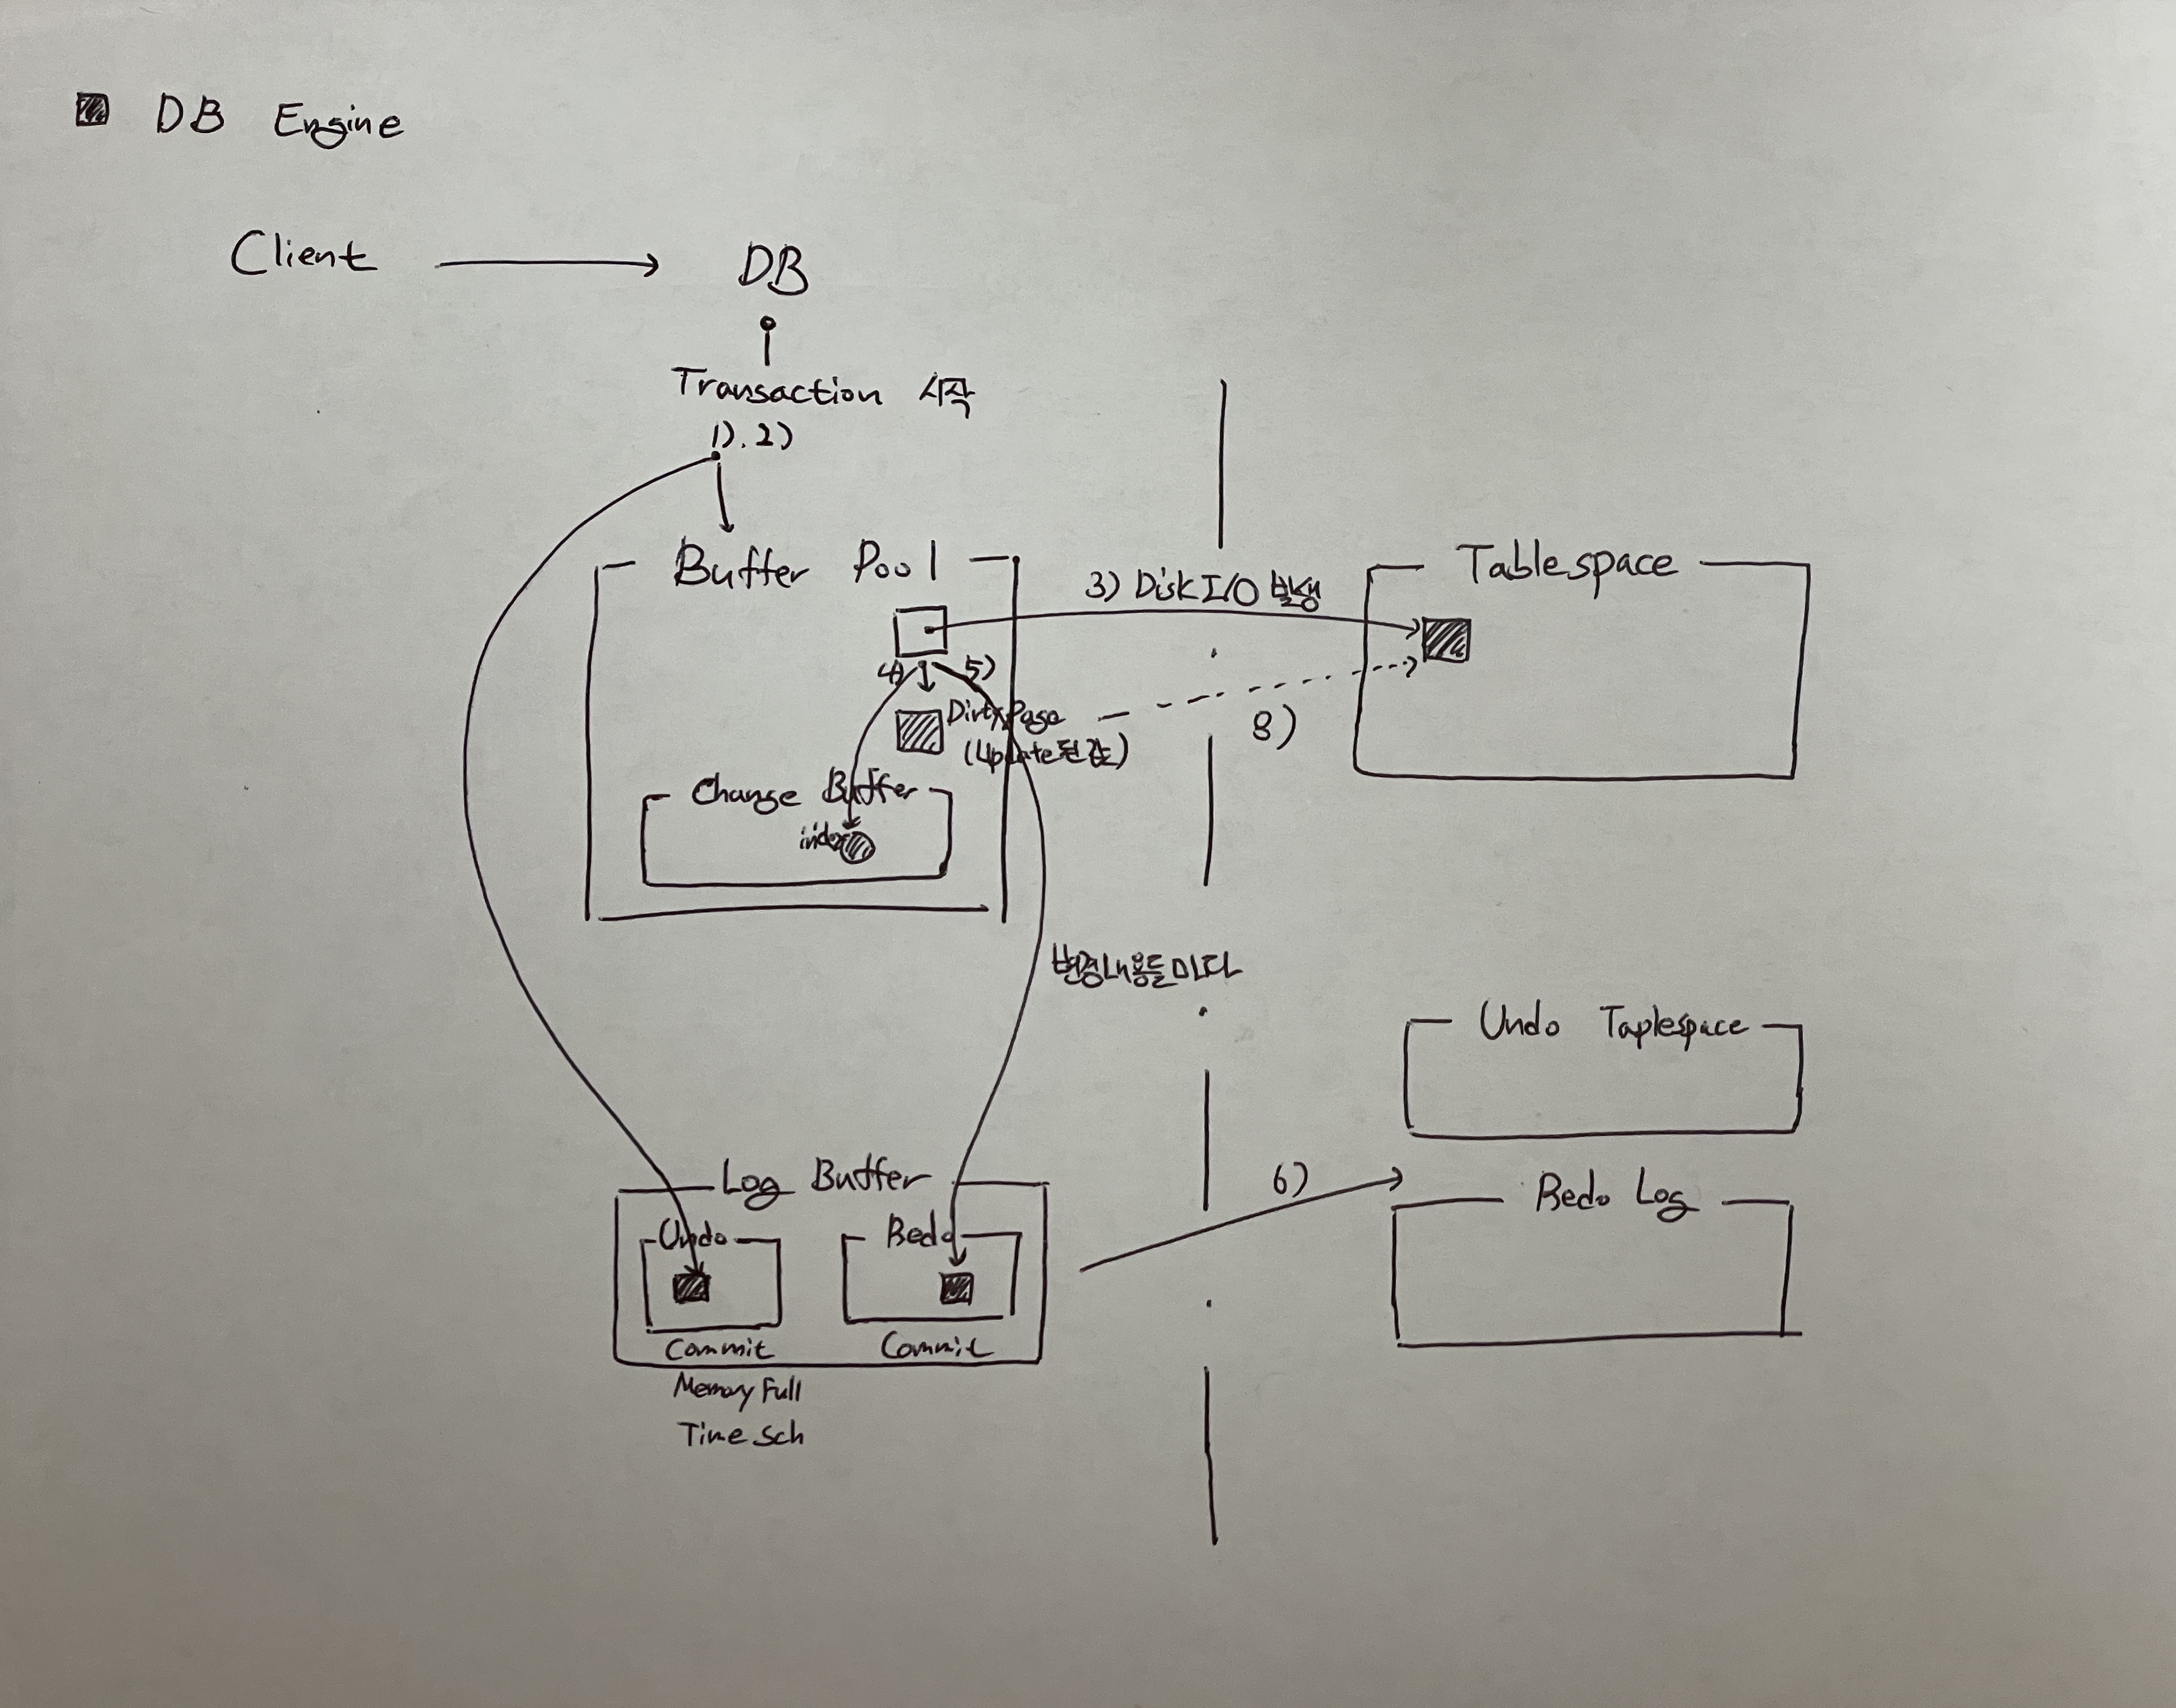 DB Engine
Client
DB
Transaction 시작
1). 2)
Buffer Pool
3) Disk I/O 발생
Tablespace
4)
5)
Dirty Page
(Update된 값)
8)
Change Buffer
index
변경내용들마다
Undo Taplespace
Log Buffer
6)
Redo Log
Undo
Redo
Commit
Commit
Memory Full
Time Sch